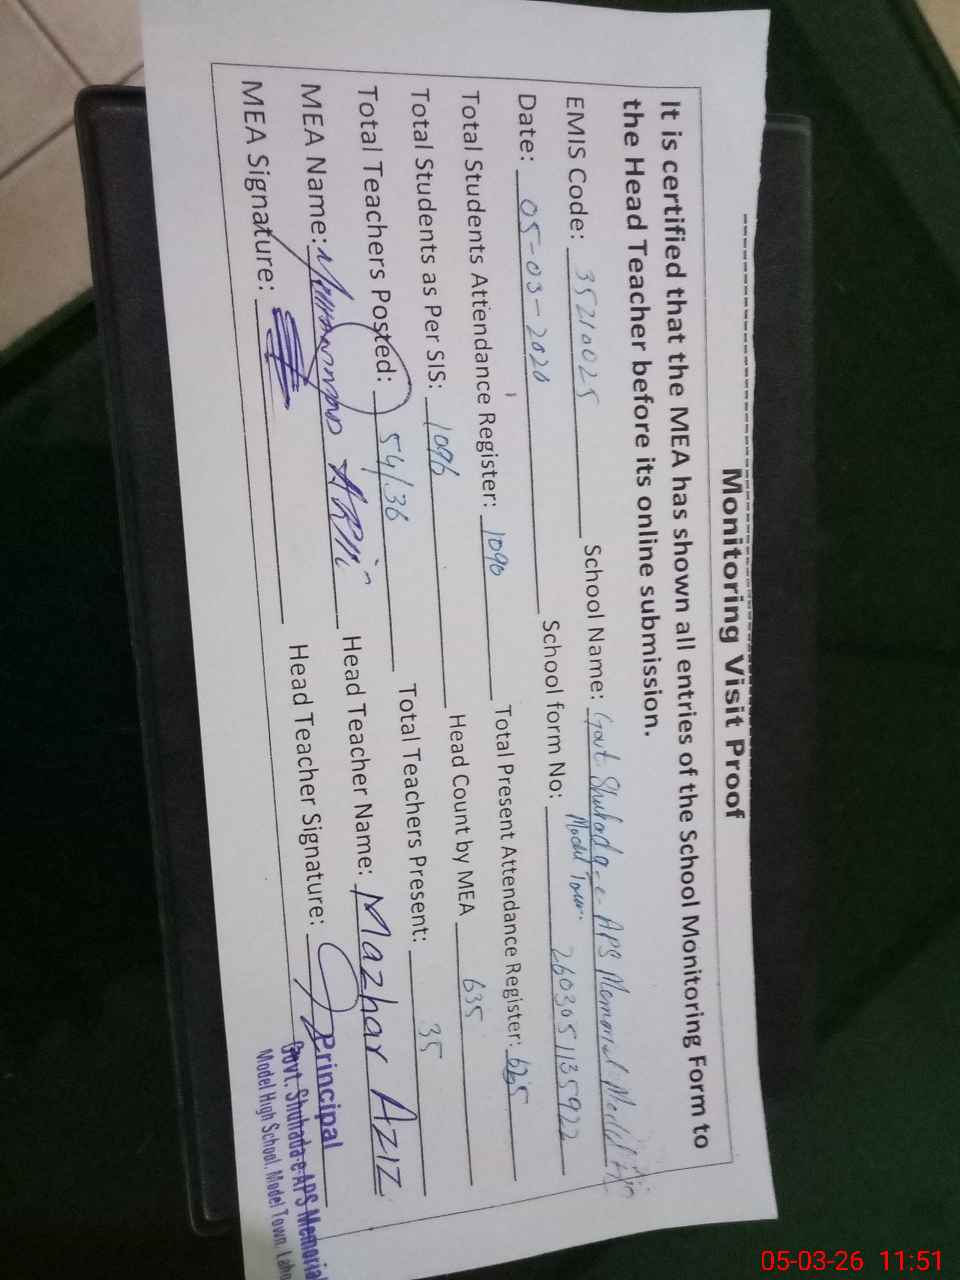 Monitoring Visit Proof
It is certified that the MEA has shown all entries of the School Monitoring Form to
the Head Teacher before its online submission.
EMIS Code: 35210025 School Name: Govt Shuhada-e-APS Memorial Model
Model Town.
Date: 05-03-2020 School form No: 2603051135922
Total Students Attendance Register: 1090 Total Present Attendance Register: 625
Total Students as Per SIS: 1096 Head Count by MEA 635
Total Teachers Posted: 54/36 Total Teachers Present: 35
MEA Name: Head Teacher Name: Mazhar Aziz
MEA Signature: Head Teacher Signature:
Principal
Govt. Shuhada-e-APS Memorial
Model High School, Model Town,
05-03-26 11:51